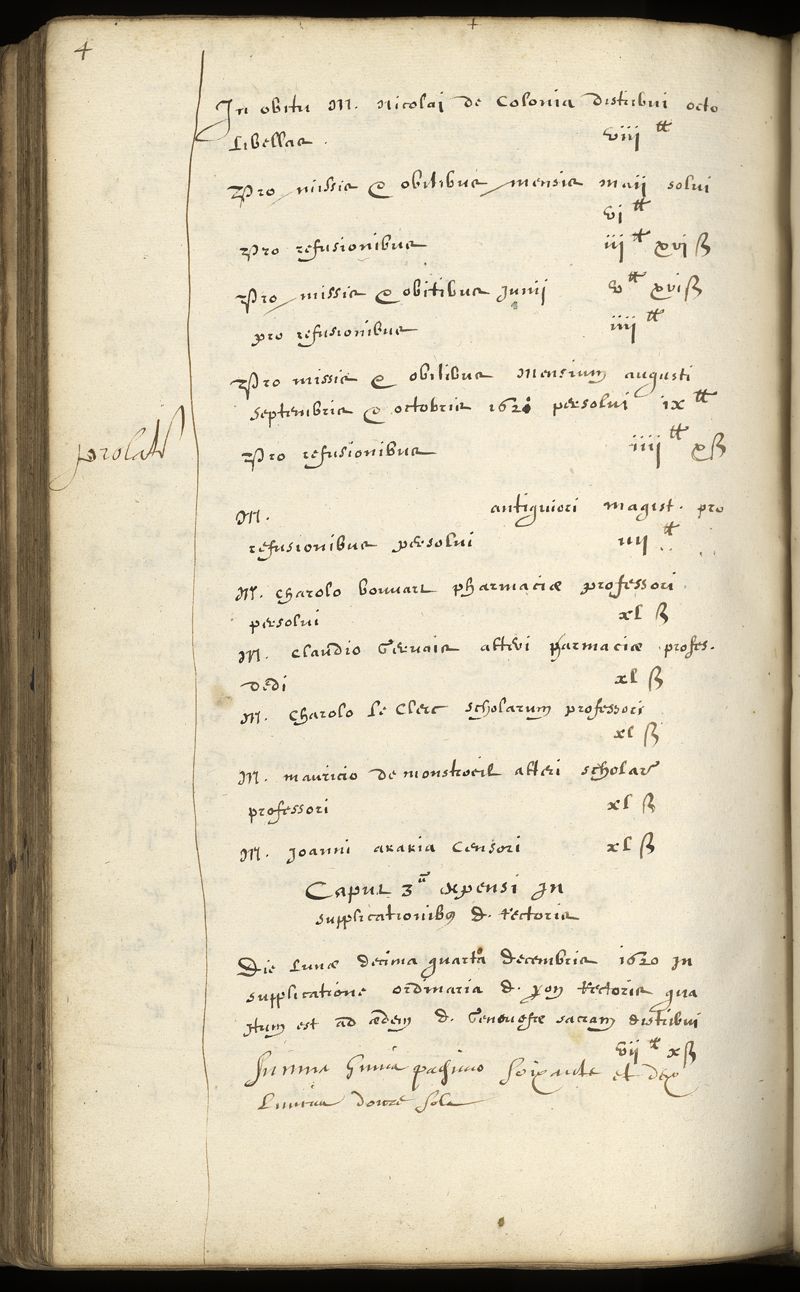 4
In obitu M. Nicolaj de Colonia distribui octo
Libellas . viii ₶
Pro missis & obitibus mensis maii solui
vi ₶
Pro refusionibus iij ₶ xvj ß
Pro missis & obitibus Junij v ₶ xvi ß
pro refusionibus iiij ₶
Pro missis & obitibus mensium augusti
septembris & octobris 1620 persolui ix ₶
prolat
Pro refusionibus iiij ₶ x ß
M. antiquiori magist. pro
refusionibus persolui iiij ₶
M. Charolo bouuart pharmaciæ professori
persolui xl ß
M. Claudio Geruais alteri pharmaciæ profes.
dedi xl ß
M. Charolo Le Clerc scholarum professori
xl ß
M. mauricio de monstroeil alteri scholar
professori xl ß
M. Joanni akakia Censori xl ß
Caput 3ũ expensi In
supplicationibus d. Rectoris
Die Lunæ decima quarta decembris 1620 in
supplicatione ordinaria d. Rectoris qua
itum est ad ædem d. Genouefæ sacram distribui
vij ₶ x ß
Summa soixante et dix
douze solz